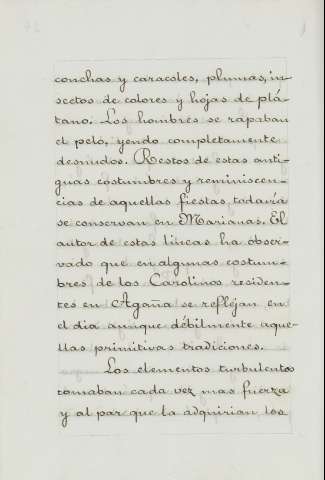 conchas y caracoles, plumas, in-
sectos de colores y hojas de plá-
tano. Los hombres se rapaban
el pelo, yendo completamente
desnudos. Restos de estas anti-
guas costumbres y reminiscen-
cias de aquellas fiestas, todavía
se conservan en Marianas. El
autor de estas lineas ha obser-
vado que en algunas costum-
bres de los Carolinos residen-
tes en Agaña se reflejan en
el dia aunque débilmente aque-
llas primitivas tradiciones.
Los elementos turbulentos
tomaban cada vez mas fuerza
y al par que la adquirian los